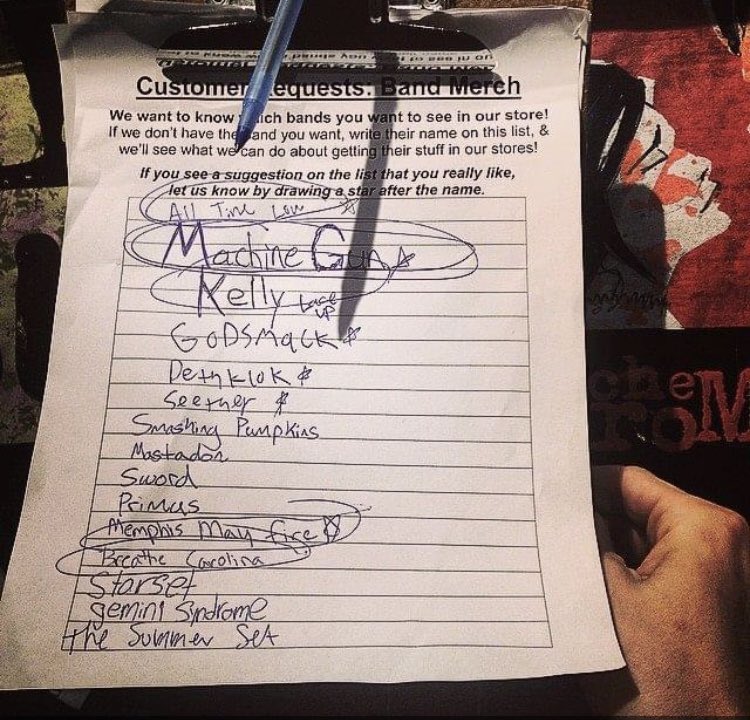 Customer Requests: Band Merch
We want to know which bands you want to see in our store!
If we don't have the band you want, write their name on this list, &
we'll see what we can do about getting their stuff in our stores!
If you see a suggestion on the list that you really like,
let us know by drawing a star after the name.
All Time Low ☆
Machine Gun ☆
Kelly Lace
UP
GODSMACK ☆
Dethklok ☆
Seether ☆
Smashing Pumpkins
Mastadon
Sword
Primus
Memphis May Fire ☆
Breathe Carolina
Starset
gemini Syndrome
The Summer Set
che
M
rom